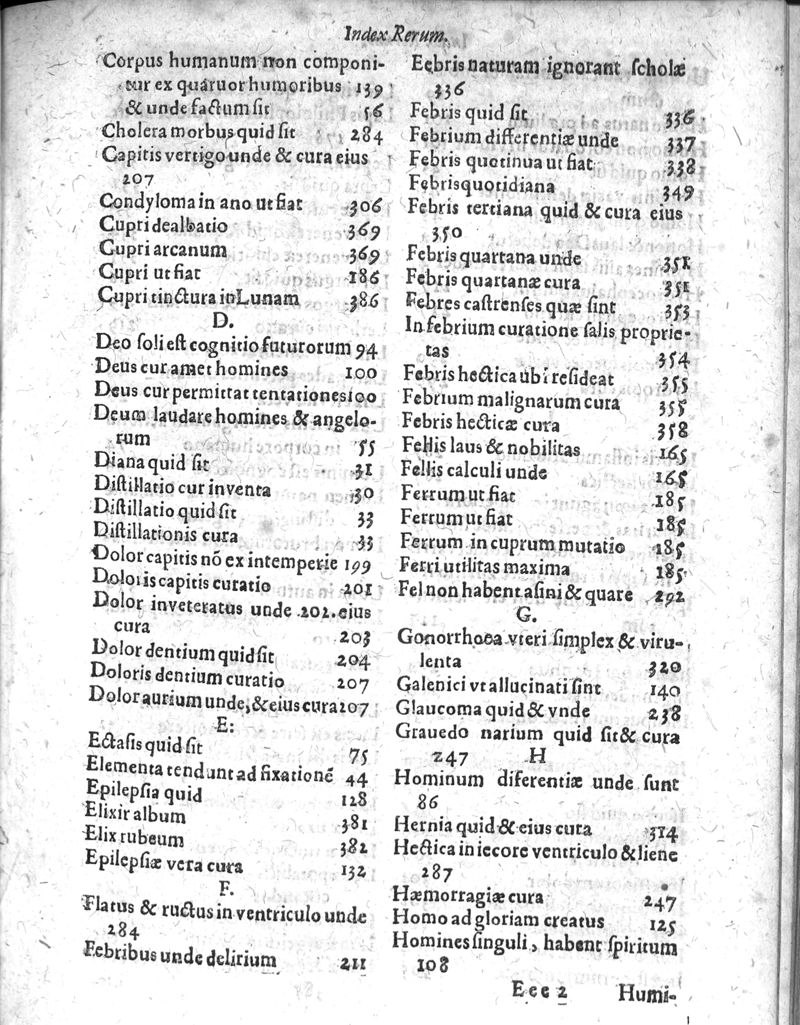 Index Rerum.
Corpus humanum non componi-
tur ex quatuor humoribus 139
& unde factum sit 56
Cholera morbus quid sit 284
Capitis vertigo unde & cura eius
207
Condyloma in ano ut fiat 306
Cupri dealbatio 369
Cupri arcanum 369
Cupri ut fiat 186
Cupri tinctura in Lunam 386
D.
Deo soli est cognitio futurorum 94
Deus cur amet homines 100
Deus cur permittat tentationes 100
Deum laudare homines & angelo-
rum 55
Diana quid sit 31
Distillatio cur inventa 30
Distillatio quid sit 33
Distillationis cura 33
Dolor capitis nō ex intemperie 199
Doloris capitis curatio 201
Dolor inveteratus unde 202. eius
cura 203
Dolor dentium quid sit 204
Doloris dentium curatio 207
Dolor aurium unde, & eius cura 207
E:
Ectasis quid sit 75
Elementa tendunt ad fixationē 44
Epilepsia quid 128
Elixir album 381
Elix rubeum 382
Epilepsiæ vera cura 132
F.
Flatus & ructus in ventriculo unde
284
Febribus unde delirium 211
Febris naturam ignorant scholæ
336
Febris quid sit 336
Febrium differentiæ unde 337
Febris quotinua ut fiat 338
Febris quotidiana 349
Febris tertiana quid & cura eius
350
Febris quartana unde 351
Febris quartanæ cura 351
Febres castrenses quæ sint 353
In febrium curatione salis proprie-
tas 354
Febris hectica ubi resideat 355
Febrium malignarum cura 355
Febris hecticæ cura 358
Fellis laus & nobilitas 165
Fellis calculi unde 165
Ferrum ut fiat 185
Ferrum ut fiat 185
Ferrum in cuprum mutatio 185
Ferri utilitas maxima 185
Fel non habent asini & quare 292
G.
Gonorrhoea vteri simplex & viru-
lenta 320
Galenici vt allucinati sint 140
Glaucoma quid & vnde 238
Gravedo narium quid sit & cura
247 H
Hominum diferentiæ unde sunt
86
Hernia quid & eius cura 314
Hectica in iecore ventriculo & liene
287
Hæmorragiæ cura 247
Homo ad gloriam creatus 125
Homines singuli, habent spiritum
108
Eee 2 Humi-